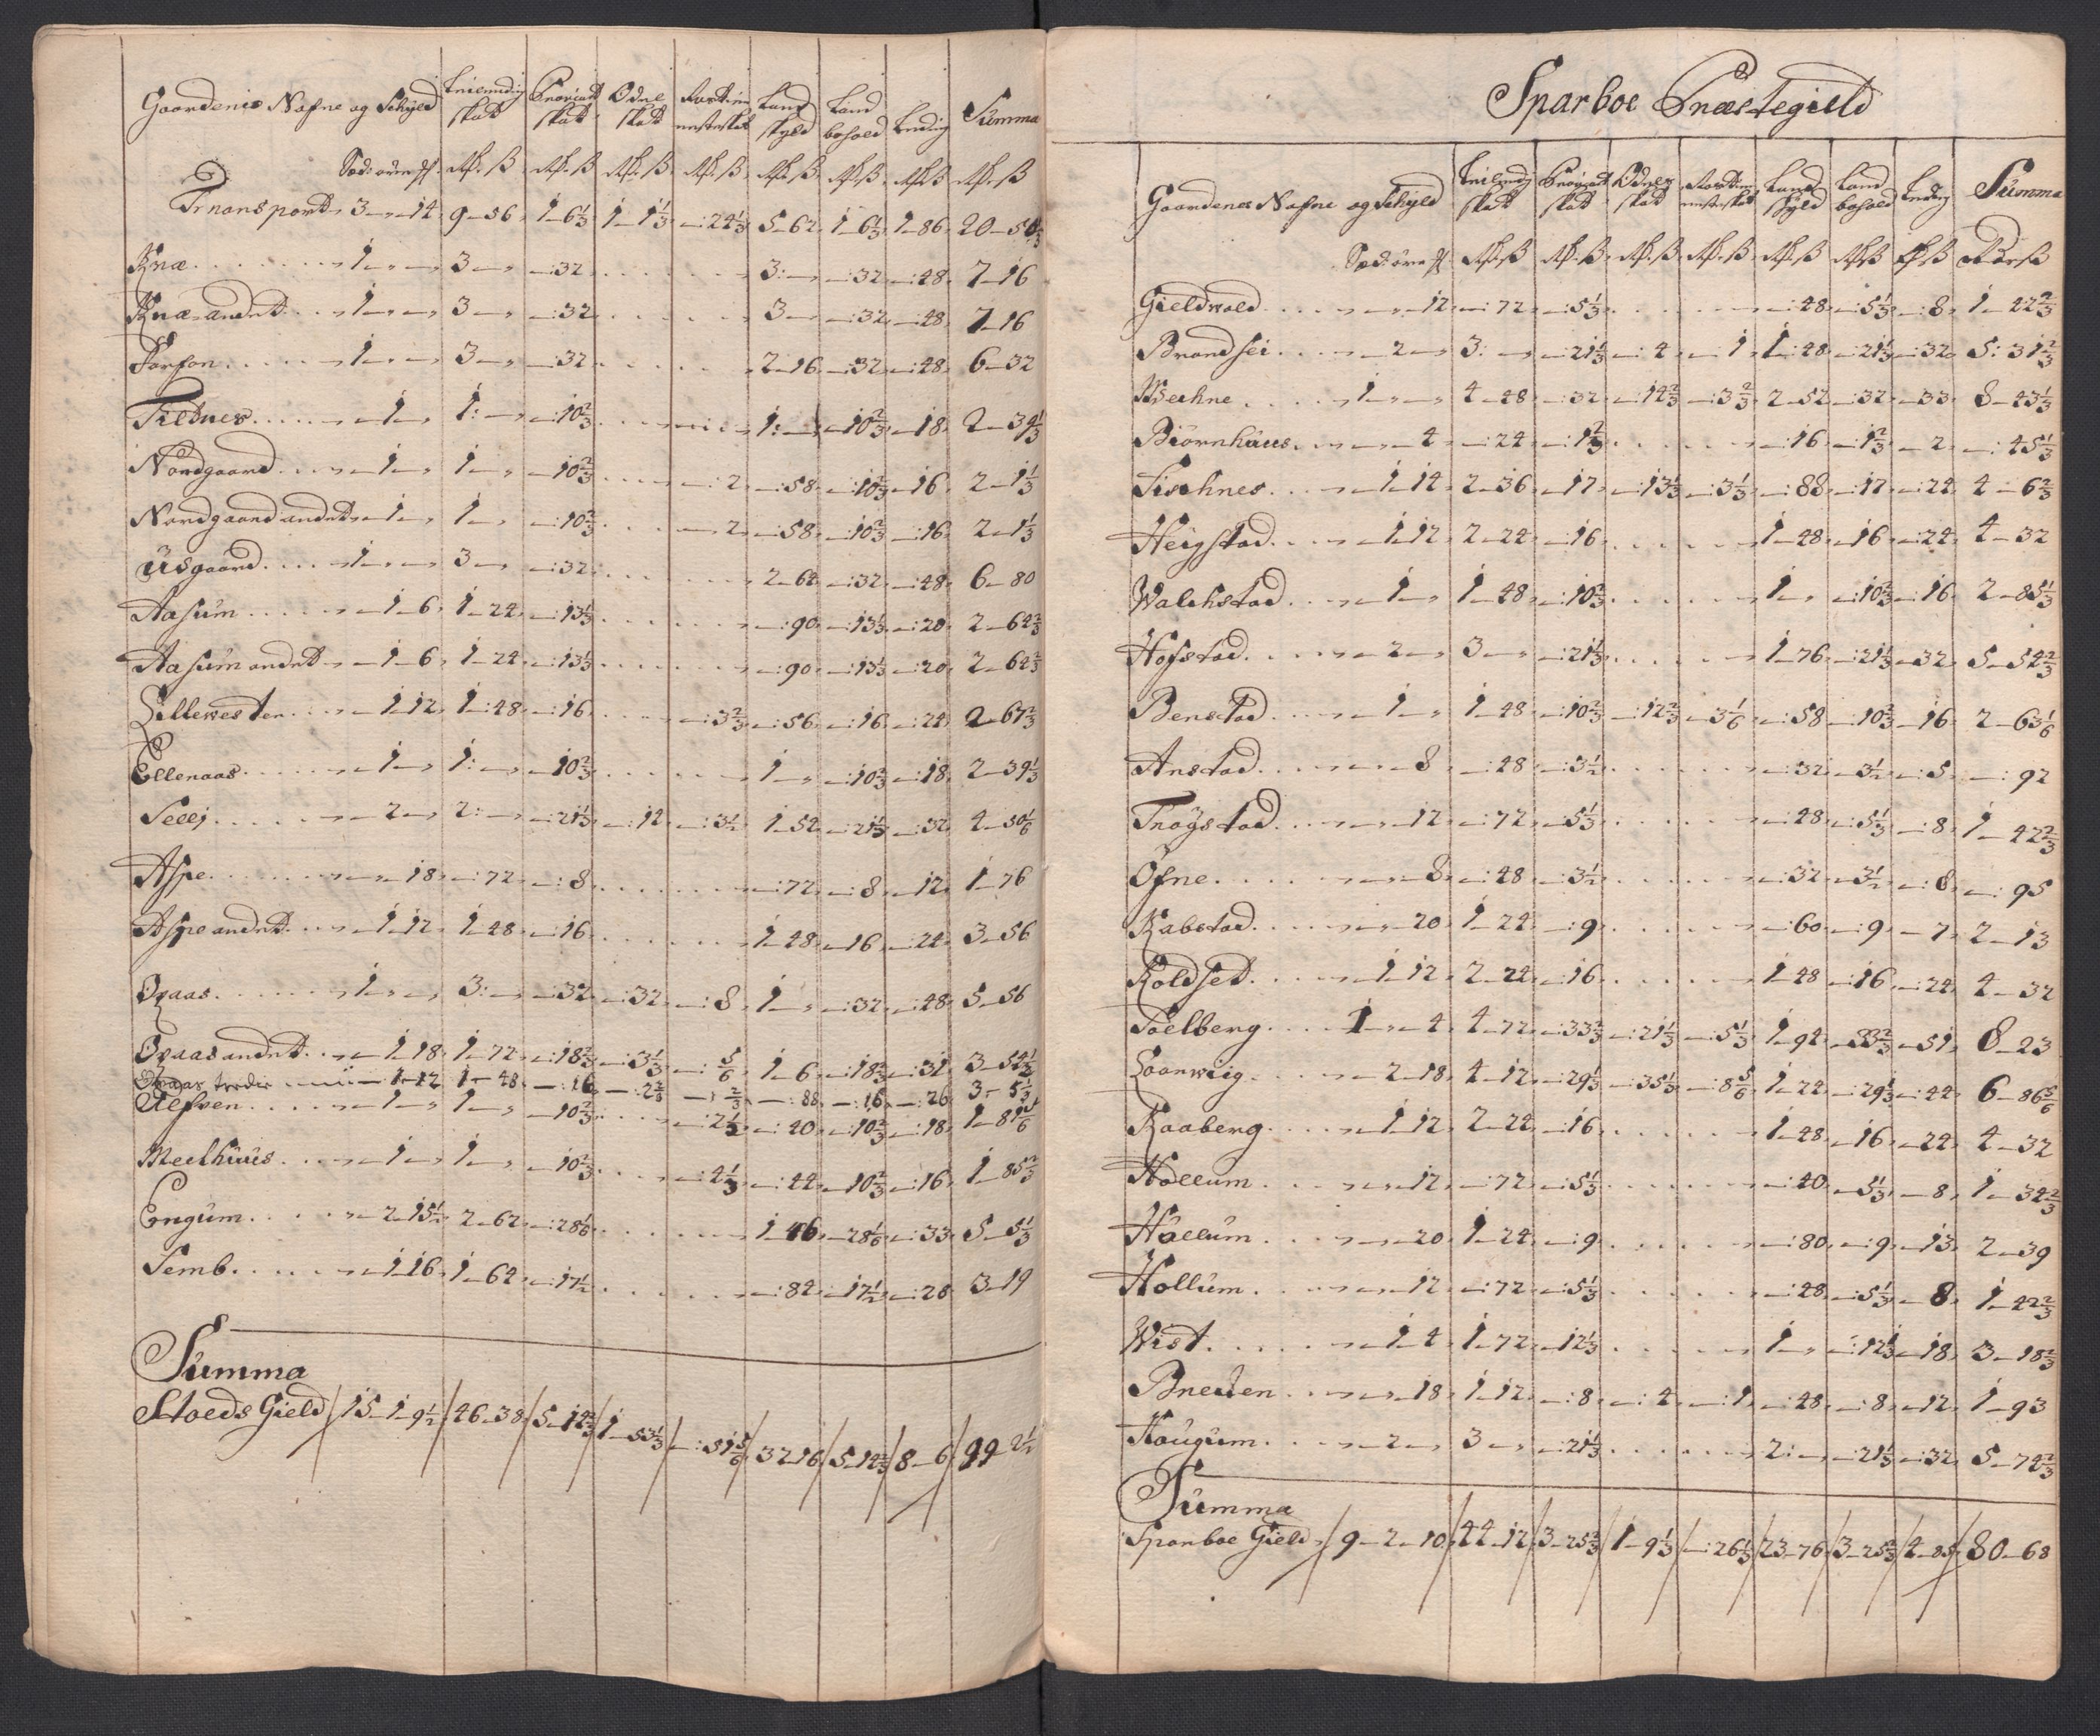 Gaardenis Nafne og Schyld Leilending skat Proviant skat Odel skat Land skyld Land bohold Leding Summa
Transport 3 - 14 9 - 56 1 - 6 1/3 1 - 1 1/3 - : 24 1/3 5 - 62 1 - 6 1/3 1 - 86 20 -
Knæ 1 - - 3 - - : 32 3 : - - : 32 - : 48 7 - 16
Knæ andet 1 - - 3 - - : 32 3 - - : 32 - : 48 7 - 16
1 - - 3 - - : 32 2 - 16 - : 32 - : 48 6 - 32
Tildnes - 1 - 1 : - - : 10 2/3 1 : - - 10 2/3 - 18 2 - 39 1/3
Nordgaard - 1 - 1 - - 10 2/3 - : 2 - : 58 - : 10 2/3 - 16 2 - 1 1/3
Nordgaard andet - 1 - 1 - - : 10 2/3 - 2 - : 58 - : 10 2/3 - : 16 2 - 1 1/3
Üsgaard 1 - - 3 - - : 32 2 - 64 - : 32 - : 48 6 - 80
Aasum - 1 - 6 1 - 24 - : 13 1/3 - : 90 - : 13 1/3 - : 20 2 - 64 2/3
Aasum andet - 1 - 6 1 - 24 - : 13 1/3 - : 90 - : 13 1/3 - : 20 2 - 64 2/3
Lillewesten - 1 12 1 - : 48 - : 16 - : 3 2/3 - : 56 - : 16 - : 24 2 - 67 2/3
Ellenaas - 1 - 1 : - - : 10 2/3 1 - - : 10 2/3 - : 18 2 - 39 1/3
Seelj - 2 - 2 : - - : 21 1/3 - : 12 - : 3 1/2 1 - 54 - : 21 1/3 - : 32 4 - 30 1/6
Aspe - - 18 - : 72 - : 8 - : 72 - : 8 - 12 1 - 76
Aspe andet - 1 12 1 - 48 - : 16 1 - 48 - 16 - : 24 3 - 56
Oxaas 1 - - 3 : - - : 32 - : 32 - : 8 1 - - : 32 - : 48 5 - 56
Oxaas andet - 1 18 1 - 72 - : 18 2/3 - : 3 1/3 - : 5/6 1 - 6 - : 18 2/3 - : 31 3 - 54 1/2
Oxaas tredie - 1 - 12 1 - 48 - : 16 - : 2 2/3 - : 2/3 - : 88 - : 16 - : 26 3 - 5 1/3
Ulfven - 1 - 1 - - 10 2/3 - : 2 1/2 - : 40 - : 10 2/3 - : 18 1 - 81 5/6
Meelhuus - 1 - 1 - - 10 2/3 - : 4 1/3 - : 44 - 10 2/3 - : 16 1 - 85 2/3
Engum - 2 15 1/2 2 - 62 - : 28 1/6 1 46 - 28 1/6 - : 33 5 - 5 1/3
Semb - 1 16 1 - 64 - : 17 1/2 - : 84 - 17 1/2 - : 28 3 - 19
Summa
Stoeds Gield 15 - 1 - 9 1/2 46 - 38 5 - 14 2/3 1 - 53 1/3 - : 51 5/6 32 16 5 - 14 2/3 8 - 6 99 - 2 1/2
Sparboe Præstegield
Gaardenes Nafne og Schyld Leilending skat Proviant skat Odels skat Land skyld Land bohold Leding Summa
Gieldvold - - 12 - : 72 - : 5 1/3 - : 48 - : 5 1/3 - : 8 1 - 42 2/3
Brandsei - 2 - 3 : - - : 21 1/3 - : 4 - : 1 1 : 48 - 21 1/3 - : 32 5 : 31 2/3
Wæchne 1 - - 4 - 48 - : 32 - : 14 2/3 - : 3 2/3 2 - 52 - : 32 - : 33 8 - 43 1/3
Biörnhaus - - 4 - : 24 - : 1 2/3 - : 16 - : 1 2/3 - 2 - : 45 1/3
Fischnes - 1 14 2 - 36 - : 17 - : 13 1/3 - : 3 1/3 - : 88 - : 17 - : 24 4 - 6 2/3
Heigstad - 1 12 2 - 24 - : 16 1 - 48 - 16 - : 24 4 - 32
Walchstad - 1 - 1 - 48 - : 10 2/3 1 - - : 10 2/3 - : 16 2 - 85 1/3
Hofstad - 2 - 3 - - : 21 1/3 1 - 76 - : 21 1/3 - 32 5 - 54 2/3
Benstad - 1 - 1 - 48 - : 10 2/3 - : 12 2/3 - 3 1/6 - : 58 - : 10 2/3 - 16 2 - 63 1/6
Anstad - - 8 - : 48 - : 3 1/2 - : 32 - 3 1/2 - : 5 - : 92
Trögstad - - 12 - : 72 - : 5 1/3 - : 48 - : 5 1/3 - : 8 1 - 42 2/3
Öfne - - 8 - : 48 - : 3 1/2 - : 32 - 3 1/2 - : 8 - : 95
Rabstad - - 20 1 - 24 - : 9 - : 60 - : 9 - 7 2 - 13
Roldset - 1 12 2 - 24 - : 16 1 - 48 - : 16 - : 24 4 - 32
Soelberg 1 - - 4 4 - 72 - : 33 2/3 - : 21 1/3 - : 5 1/3 1 - 94 - 33 2/3 - 51 8 - 23
Laarweig - 2 - 18 4 - 12 - : 29 1/3 - : 35 1/3 - : 8 5/6 1 - 24 - : 29 1/3 - : 44 6 - 86 5/6
Raaberg - 1 12 2 - 24 - : 16 1 - 48 - 16 - : 24 4 - 32
Hallum - - 12 - : 72 - : 5 1/3 - : 40 - : 5 1/3 - 8 1 - 34 2/3
Hallum - - 20 1 - 24 - : 9 - : 80 - : 9 - 13 2 - 39
Hollum - - 12 - : 72 - : 5 1/3 - : 48 - : 5 1/3 - 8 1 - 42 2/3
Wist - 1 4 1 - 72 - 12 1/3 1 - - : 12 1/3 - 18 3 - 18 2/3
- - 18 1 - 12 - : 8 - : 4 - : 1 - : 48 - : 8 - 12 1 - 93
Haugum - 2 - 3 - - : 21 1/3 2 : - - : 21 1/3 - : 32 5 - 74 2/3
Summa
Sparboe Gield 9 - 2 - 10 44 - 12 3 - 25 2/3 1 - 9 1/3 - : 26 1/3 23 - 76 3 - 25 2/3 4 - 85 80 - 68